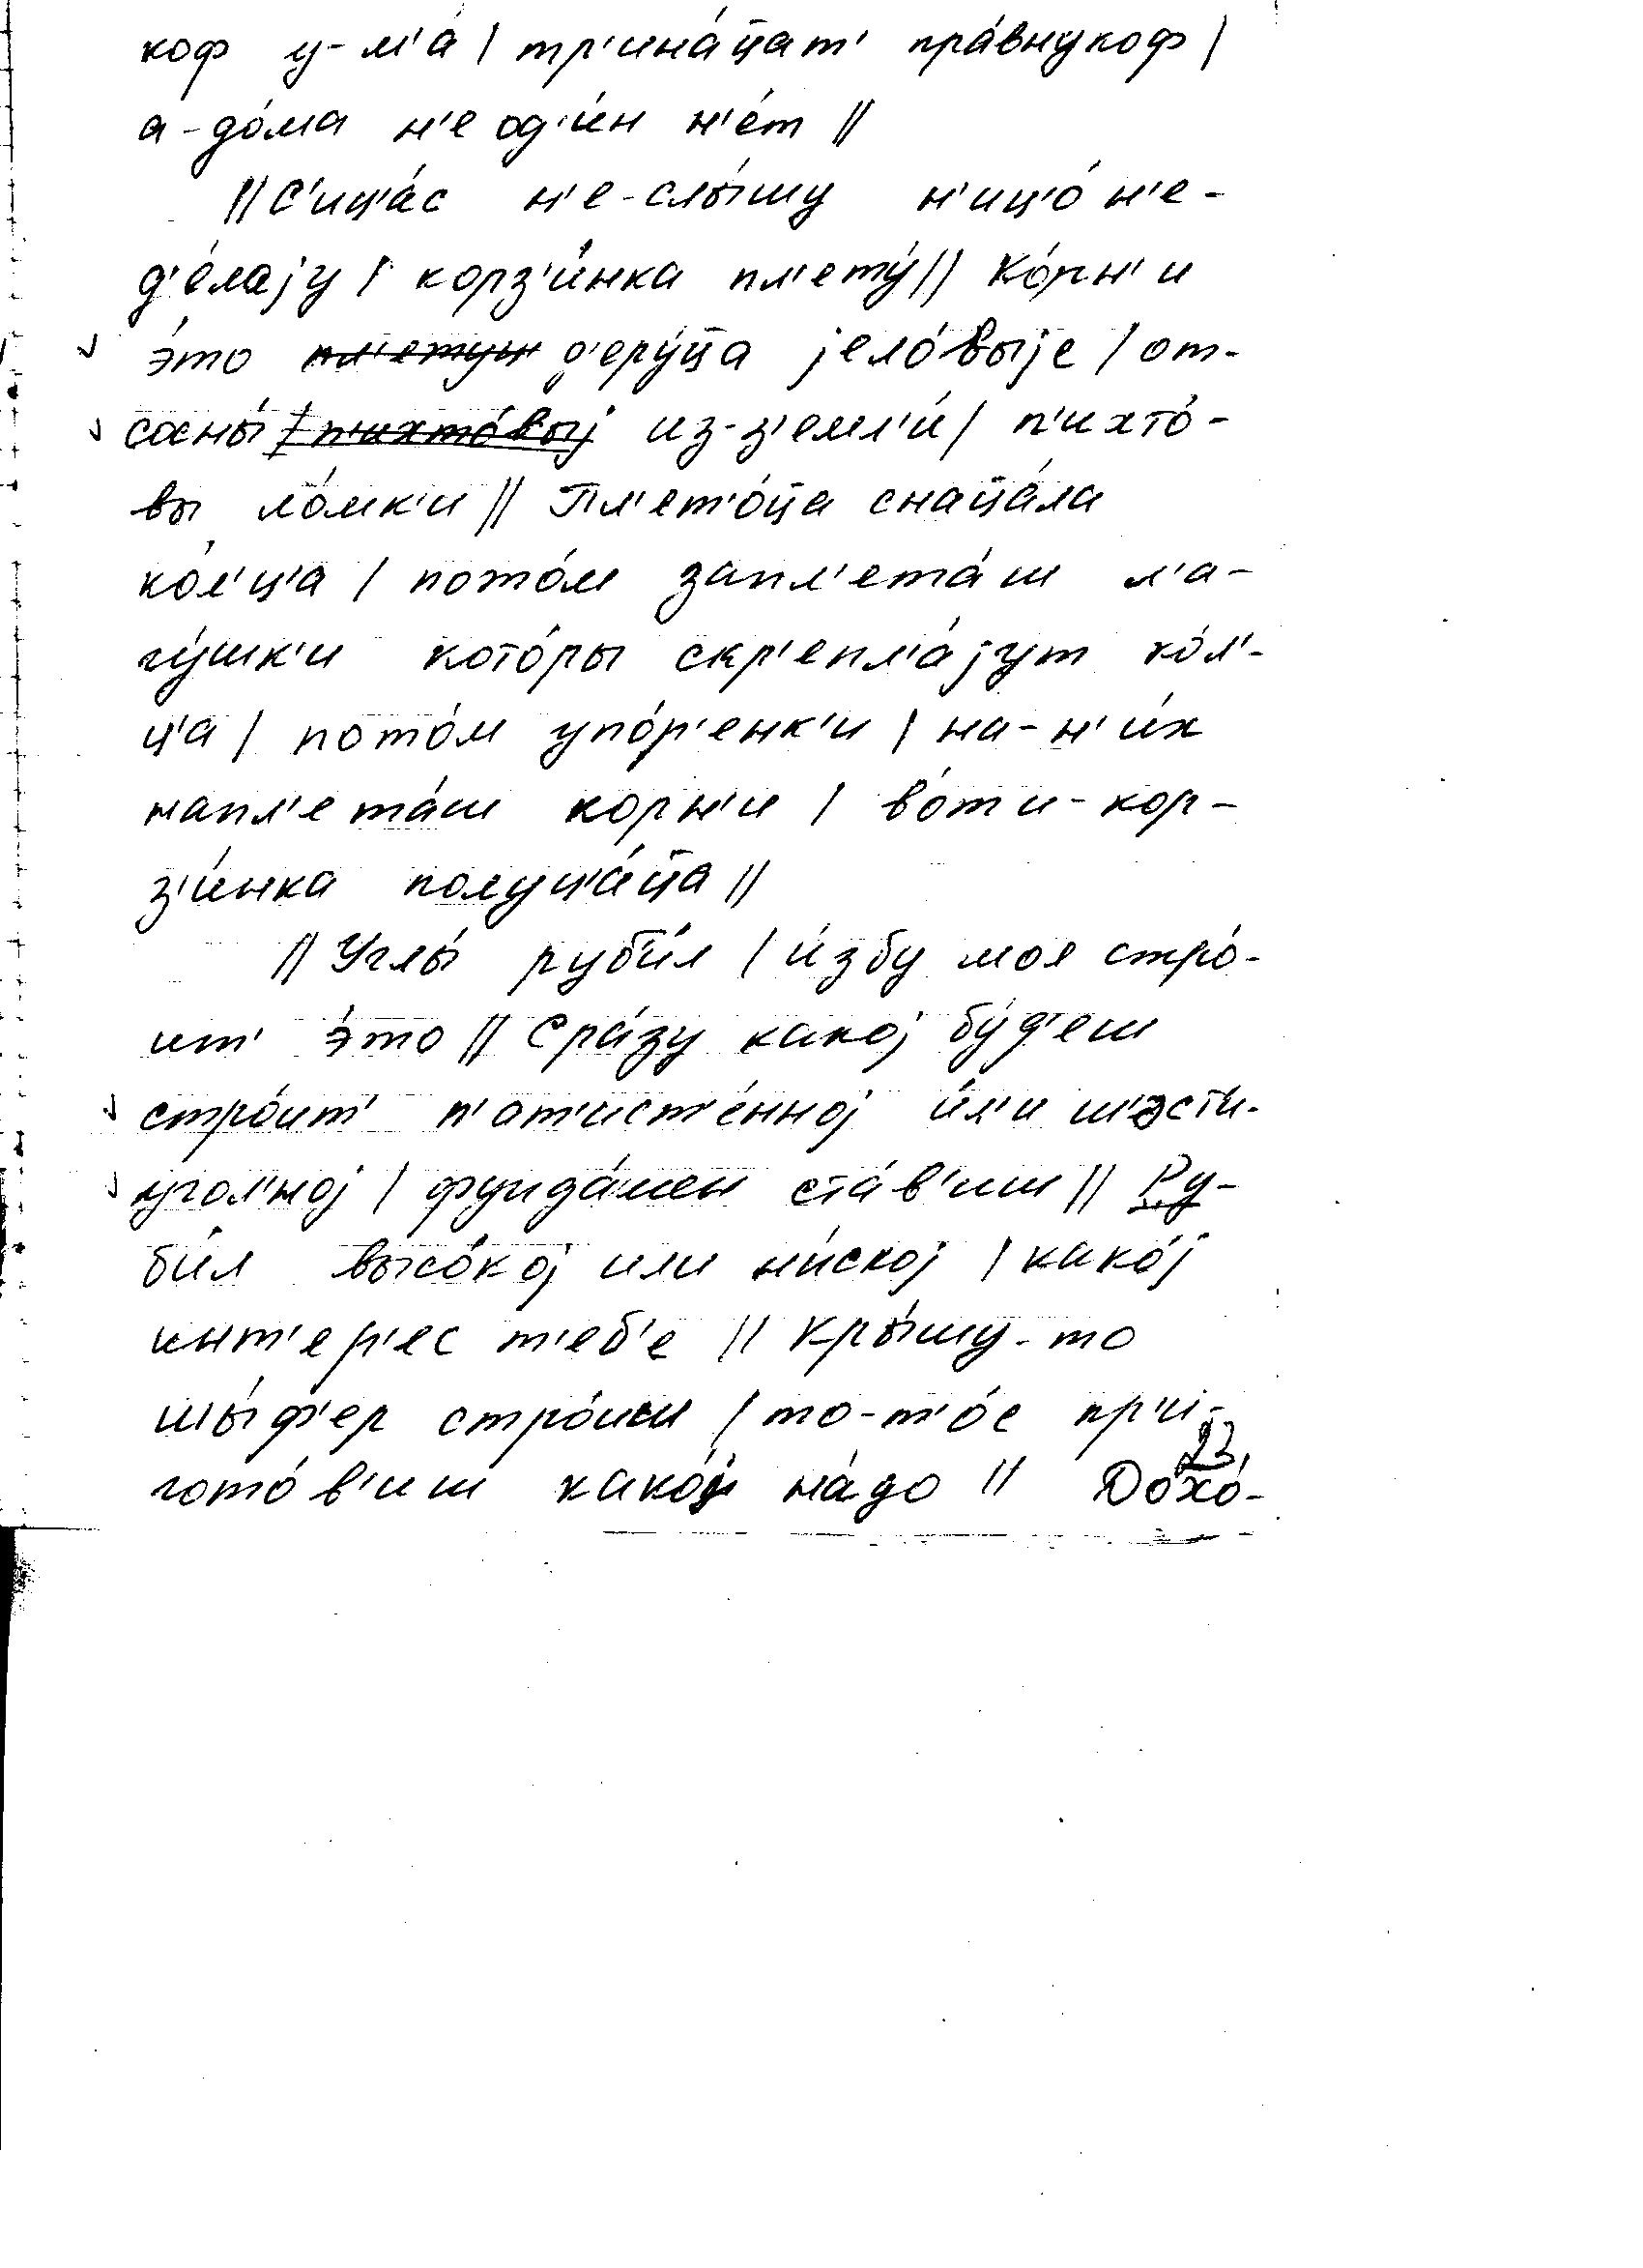 коф у-м'а́ | тр'ина́ц̄ат' пра́внукоф |
а-до́ма н'е од'и́н н'е́т ||
|| С'иц'а́с н'е-слы́шу н'иц'о́ н'е-
д'е́лају | корз'и́нка пл'ету́ || Ко́рн'и
э́то пл'етун д'еру́ц̄а јело́выје / от-
сосны́ / п'ихто́выј из-з'емл'и́ / п'ихто́-
вы ло́мк'и || Пл'ет'о́ц̄а снац̄а́ла
ко́л'ц'а / пото́м запл'ета́ш л'а-
гу́шк'и кото́ры скр'епл'а́јут ко́л'-
ц'а / пото́м упо́р'енк'и / на-н'и́х
напл'ета́ш корн'и / во́т и-кор-
з'и́нка полуц'а́ц̄а ||
|| Углы́ руб'и́л / и́збу моя стро́-
ит' э́то || Сра́зу какој бу́д'еш
стро́ит' п'ат'ист'е́нној и́л'и ш'эсти-
угол'ној / фунда́мен ста́в'иш || Ру-
би́л высо́кој или ни́ској / како́ј
инт'ер'ес т'еб'е || Кры́шу-то
шы́ф'ер стро́иш / то-т'о́с пр'и-
гото́в'иш како́ј на́до || До́хо́-
23